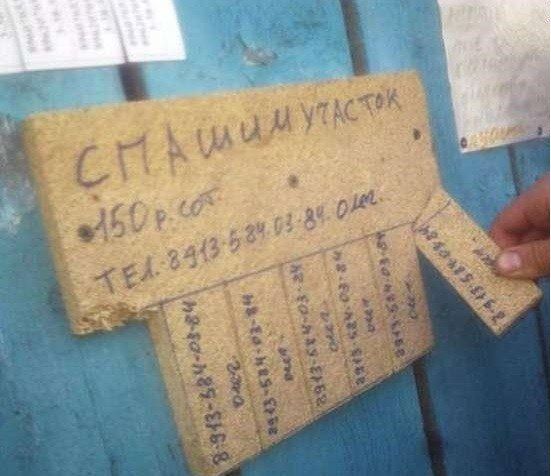 СПАШИМ УЧАСТОК
150 р. сот.
ТЕЛ. 8913-584.03-84. Олег.
8913-584-03-84
Олег
8913-584-03-84
Олег
8913-584-03-84
Олег.
8913-584-03-84
Олег
8913-584-03-84
Олег
8913-584-03-84
Олег.